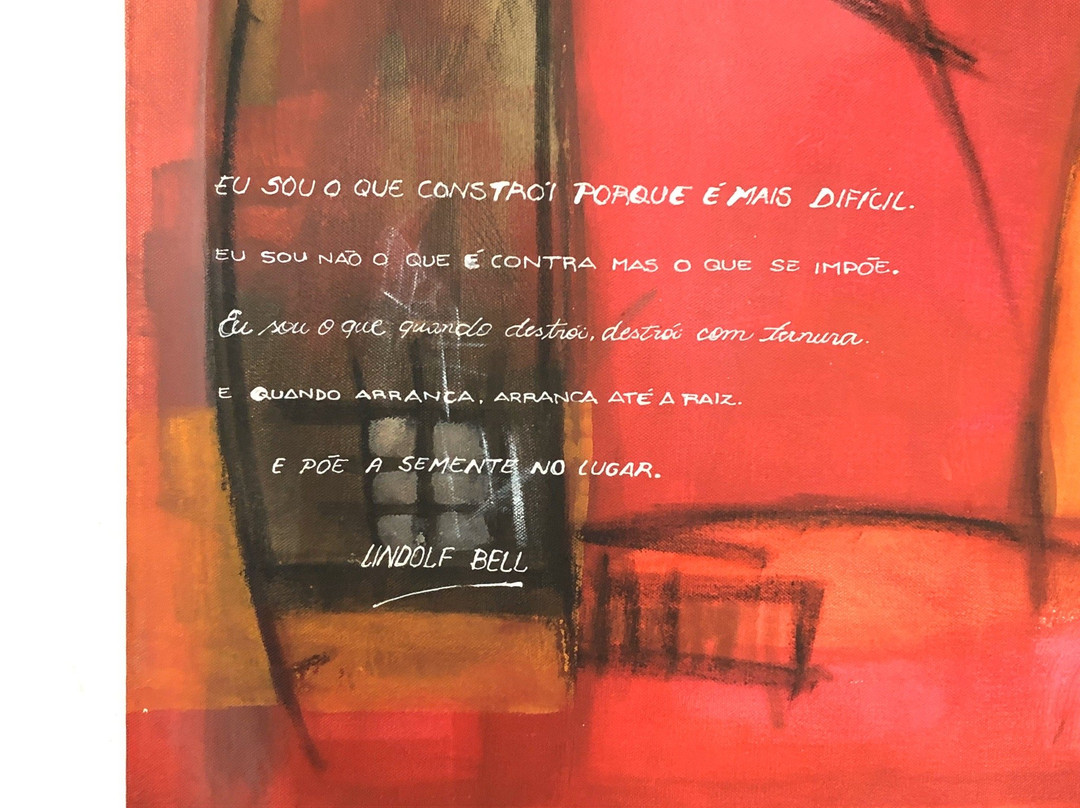 EU SOU O QUE CONSTRÓI PORQUE É MAIS DIFÍCIL.
EU SOU NÃO O QUE É CONTRA MAS O QUE SE IMPÕE.
Eu sou o que, quando destrói, destrói com ternura.
E QUANDO ARRANCA, ARRANCA ATÉ A RAIZ.
E PÕE A SEMENTE NO LUGAR.
LINDOLF BELL